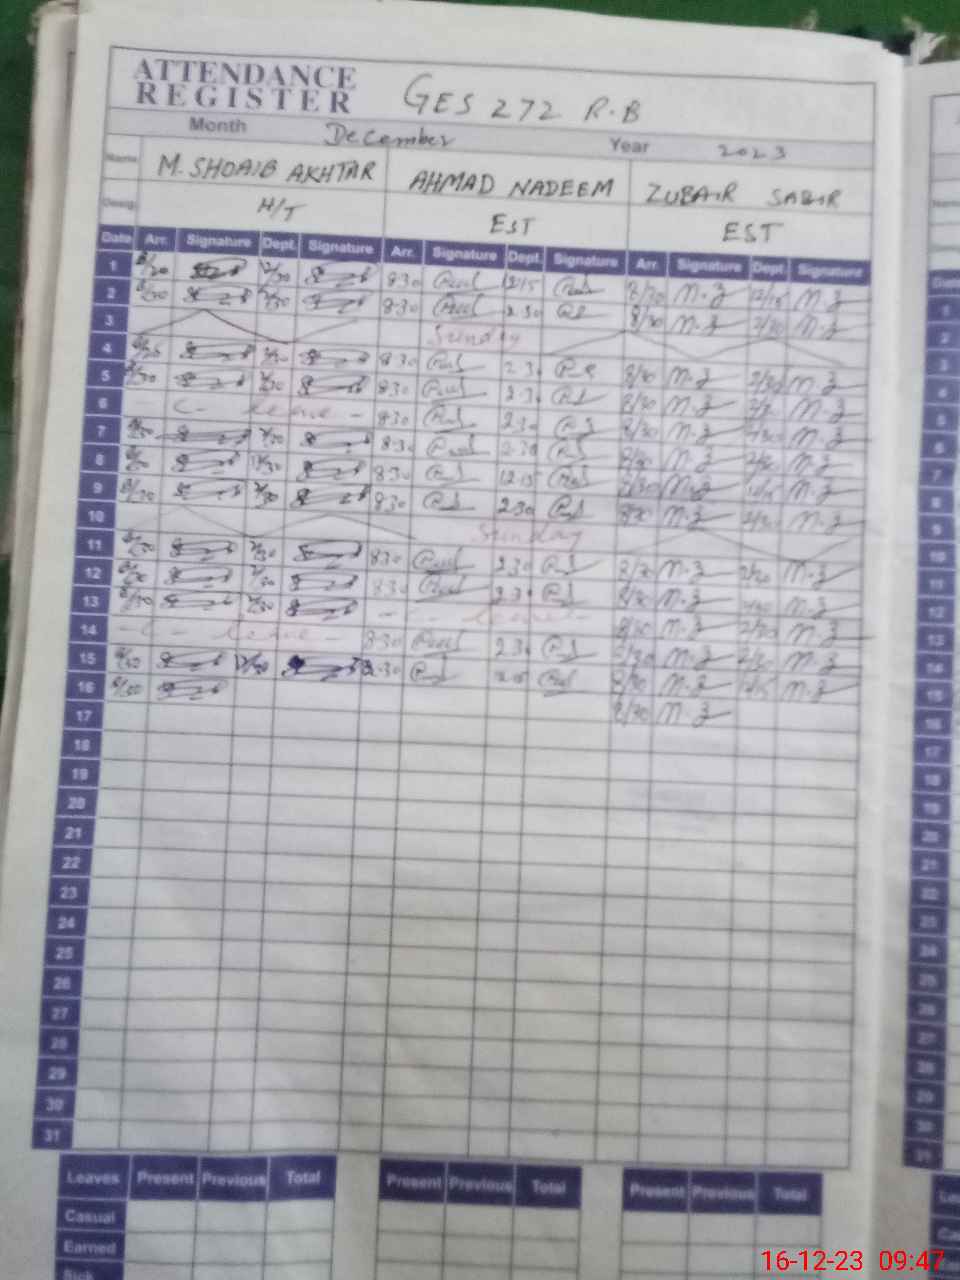 ATTENDANCE
REGISTER
GES 272 R.B
Month December Year 2023
Name M. SHOAIB AKHTAR AHMAD NADEEM ZUBAIR SABIR
Desig. H/T EST EST
Date Arr. Signature Dept. Signature Arr. Signature Dept. Signature Arr. Signature Dept. Signature
1 8/30 12/30 8:30 12:15 8/30 M.Z 12/15 M.Z
2 8/30 2/30 8:30 2:30 8/30 M.Z 2/30 M.Z
3 Sunday
4 2/30 8:30 2:30 8/30 M.Z 2/30 M.Z
5 8/30 2/30 8:30 2:30 8/30 M.Z 2/30 M.Z
6 - C - leave - 8:30 2:30 8/30 M.Z 2/30 M.Z
7 8/30 2/30 8:30 2:30 8/30 M.Z 2/30 M.Z
8 8/30 12/30 8:30 12:15 8/30 M.Z 12/15 M.Z
9 8/30 2/30 8:30 2:30 8:30 M.Z 2/30 M.Z
10 Sunday
11 8/30 2/30 8:30 2:30 8/30 M.Z 2/30 M.Z
12 8/30 2/30 8:30 2:30 8/30 M.Z 2/30 M.Z
13 8/30 2/30 - leave - 8/30 M.Z 2/30 M.Z
14 - C - leave - 8:30 2:30 8/30 M.Z 2/30 M.Z
15 8/30 12/30 8:30 8/30 M.Z 12/15 M.Z
16 8/30 8/30 M.Z
17
18
19
20
21
22
23
24
25
26
27
28
29
30
31
Leaves Present Previous Total Present Previous Total Present Previous Total
Casual
Earned
Sick
16-12-23 09:47